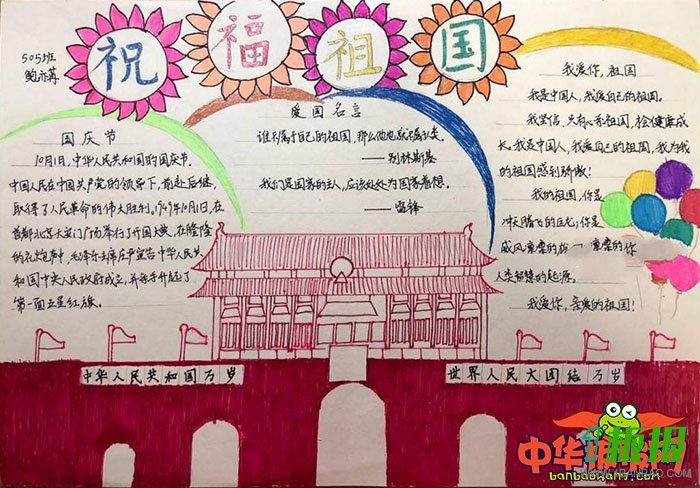 祝福祖国
505班
国庆节
10月1日,中华人民共和国的国庆节,
中国人民在中国共产党的领导下,前赴后继,
取得了人民革命的伟大胜利。1949年10月1日,在
首都北京天安门广场举行了开国大典,在隆隆
的礼炮声中,毛泽东主席庄严宣告中华人民共
和国中央人民政府成立,并亲手升起了
第一面五星红旗。
爱国名言
谁不属于自己的祖国,那么他也就不属于人类。
——别林斯基
我们是国家的主人,应该处处为国家着想。
——雷锋
我爱你,祖国
我是中国人,我爱自己的祖国。
我坚信,只有心系祖国,才会健康成
长。我是中国人,我爱自己的祖国,我为我
的祖国感到骄傲!
我的祖国,你是
冲天腾飞的巨龙;你是
威风凛凛的
凛凛的你
人类智慧的起源。
我爱你,亲爱的祖国!
中华人民共和国万岁
世界人民大团结万岁